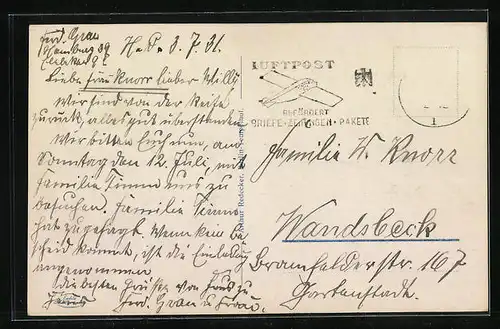 Ferd. Grau
Hamburg 39
H. P. 3. 7. 31.
Liebe Frau Knorr lieber Willy
Wir sind von der Reise
zurück, alles gut überstanden
Wir bitten Euch nun, am
Sonntag den 12. Juli, mit
Familie Timm uns zu
besuchen. Familie Timm
hat zugesagt. Wenn kein Be
scheid kommt, ist die Einladung
angenommen
die besten Grüßen von Haus zu
Haus Ferd. Grau u Frau.
LUFTPOST
BEFÖRDERT
BRIEFE · ZEITUNGEN · PAKETE
Familie W. Knorr
Wandsbeck
Bramfelderstr. 167
Gartenstadt.